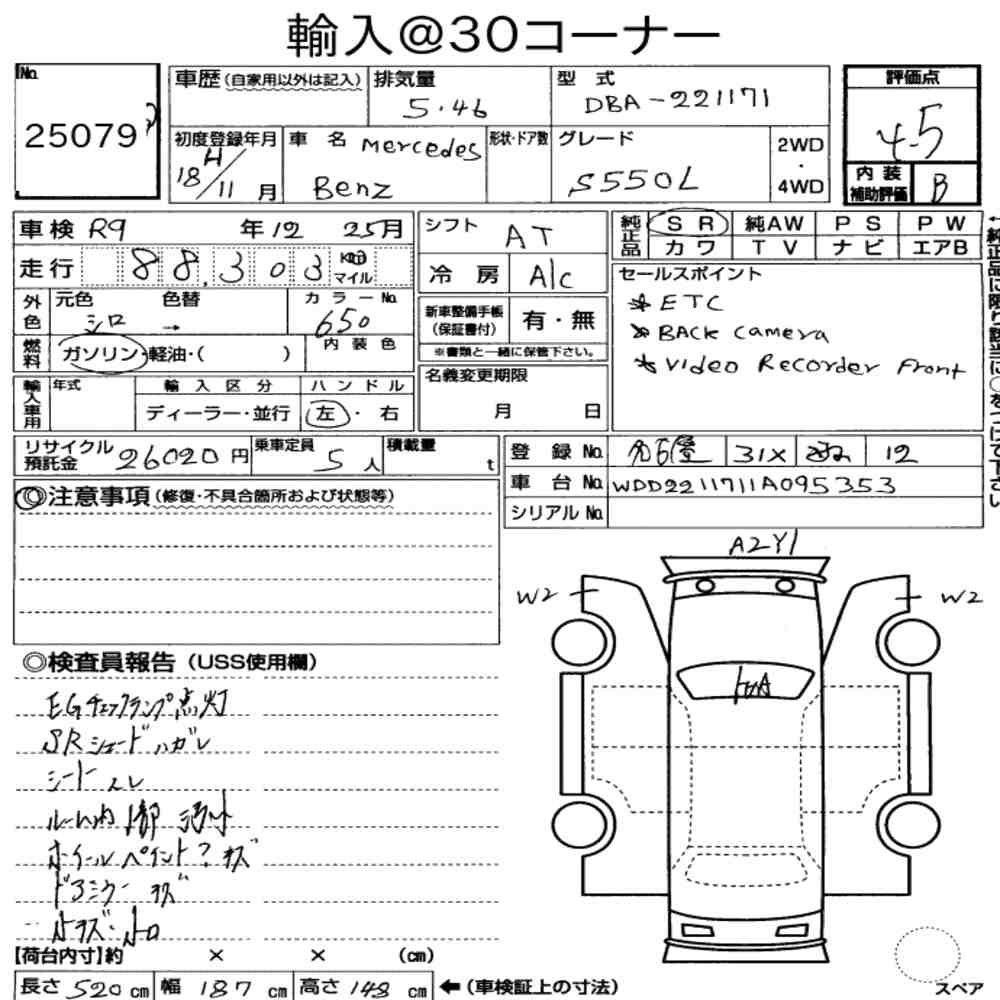 輸入@30コーナー
No. 25079
車歴(自家用以外は記入) 排気量 5.46 型式 DBA-221171
初度登録年月 18/11月 車名 Mercedes Benz 形状・ドア数 グレード S550L 2WD・4WD
評価点 4.5
内装補助評価 B
車検 R9 年 12 25月
走行 88,303 Km マイル
外色 元色 シロ 色替 → カラーNo. 650
燃料 ガソリン・軽油・( ) 内装色
輸入車用 年式 輸入区分 ディーラー・並行 ハンドル 左・右
シフト AT
冷房 A/C
新車整備手帳(保証書付) 有・無
※書類と一緒に保管下さい。
名義変更期限 月 日
純正品 SR 純AW PS PW
カワ TV ナビ エアB
セールスポイント
* ETC
* BACK Camera
* Video Recorder Front
←純正品に限り該当に○をつけて下さい
リサイクル預託金 26020円 乗車定員 5人 積載量 t
登録No. 名古屋 31X 12
車台No. WDD2211711A095353
シリアルNo.
◎注意事項(修復・不具合箇所および状態等)
A2Y1
W2
W2
◎検査員報告(USS使用欄)
EGチェックランプ点灯
SRシェードハガレ
シートスレ
ホイールペイント?キズ
ドアミラーキズ
【荷台内寸】約 × × (cm)
長さ 520cm 幅 187cm 高さ 148cm ←(車検証上の寸法)
スペア